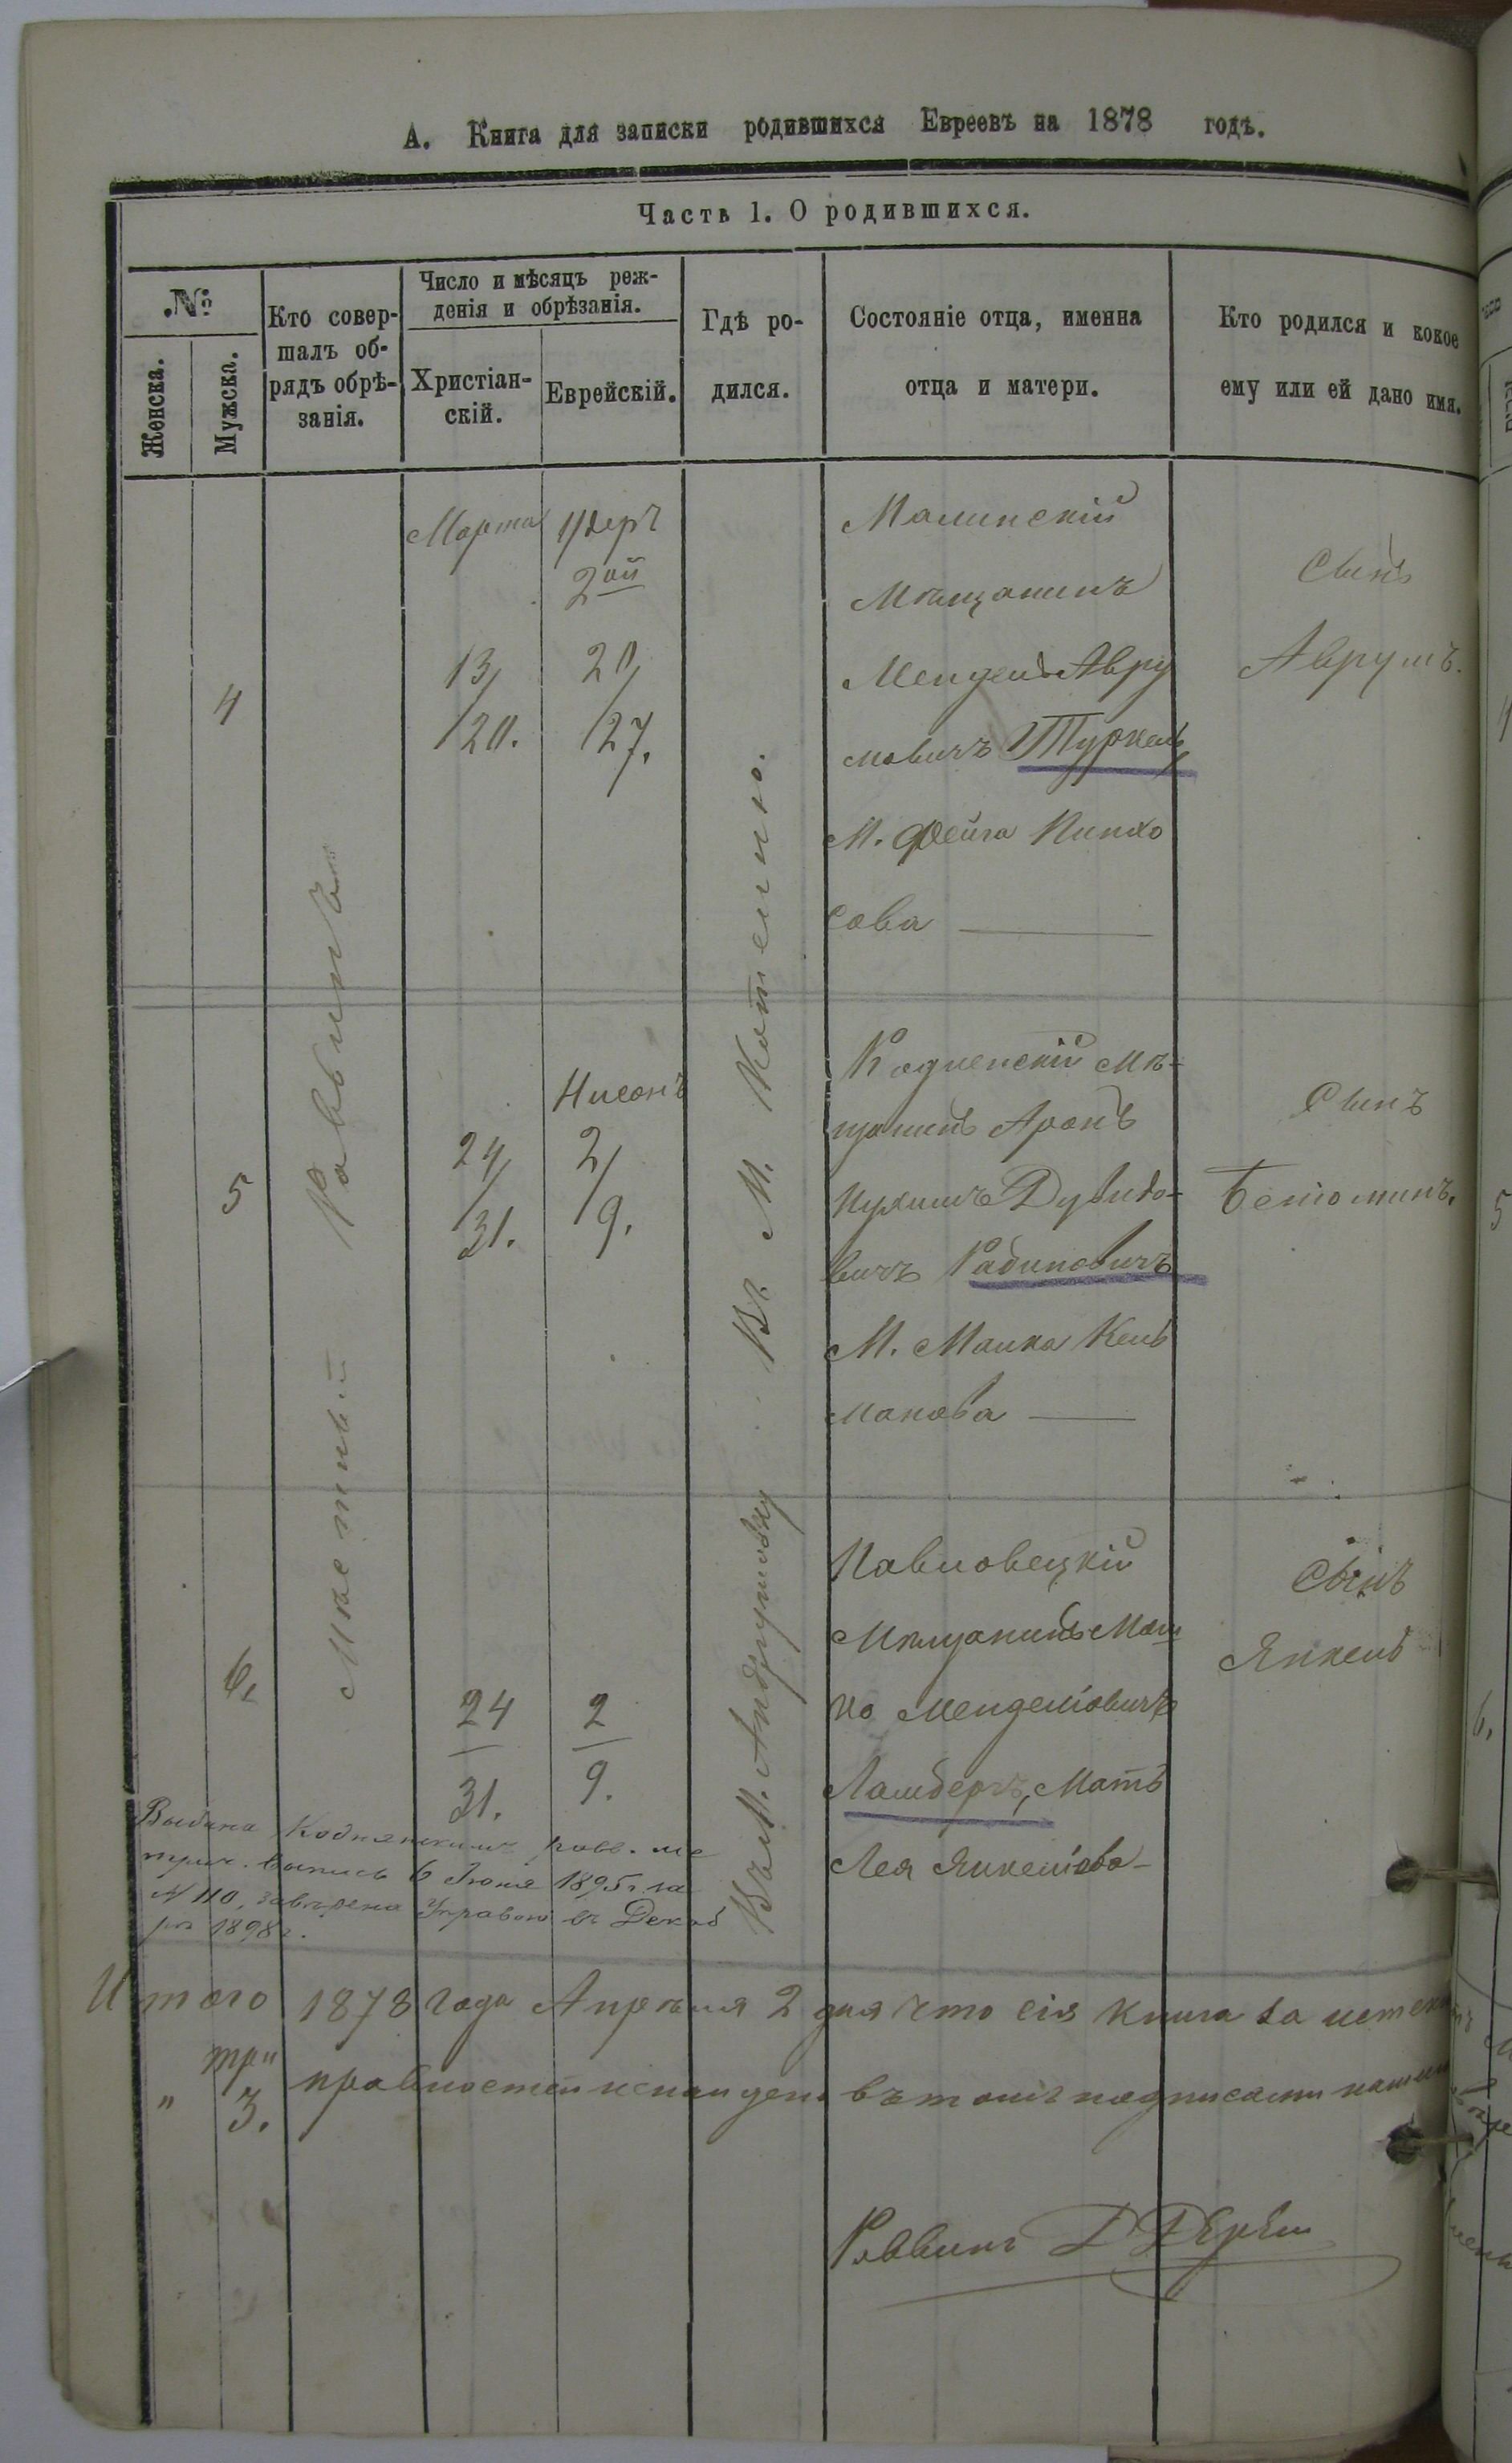 А. Книга для записки родившихся Евреевъ на 1878 годъ.
Часть 1. О родившихся.
№
Женска.
Мужска.
Кто совер-
шалъ об-
рядъ обрѣ-
занія.
Число и мѣсяцъ реж-
денія и обрѣзанія.
Христіан-
скій.
Еврейскій.
Гдѣ ро-
дился.
Состояніе отца, именна
отца и матери.
Кто родился и кокое
ему или ей дано имя.
Мѣстный Раввинъ
В. М. Котельно.
4
Марта
13/
/20.
Удеръ
2ой
20/
/27.
Малинскій
Мѣщанинъ
Мендель Авру
мовичъ Туркель
М. Фейга Пинхо
сова
Сынъ
Аврумъ.
5
24/
/31.
Нисонъ
2/
/9.
Кодненскій мѣ-
щанинъ Аронъ
Нухимъ Дувидо-
вичъ Рабиновичъ
М. Малка Кель
манова
Сынъ
Беніоминъ.
6.
24
31.
2
9.
Въ М. Андрушовку
Павловецкій
Мѣщанинъ Мош
ко Менделіовичъ
Ламберъ, Мать
Лея Янкеліова
Сынъ
Янкель
Выдана Коднянскимъ равв. ме
трич. выпись 6 Іюня 1895 г. за
N 110, завѣрена Управою въ Декаб
рѣ 1898 г.
Итого 1878 года Апрѣля 2 дня что сія книга во
три
" 3.
въ томъ подписами нашими
Раввинъ